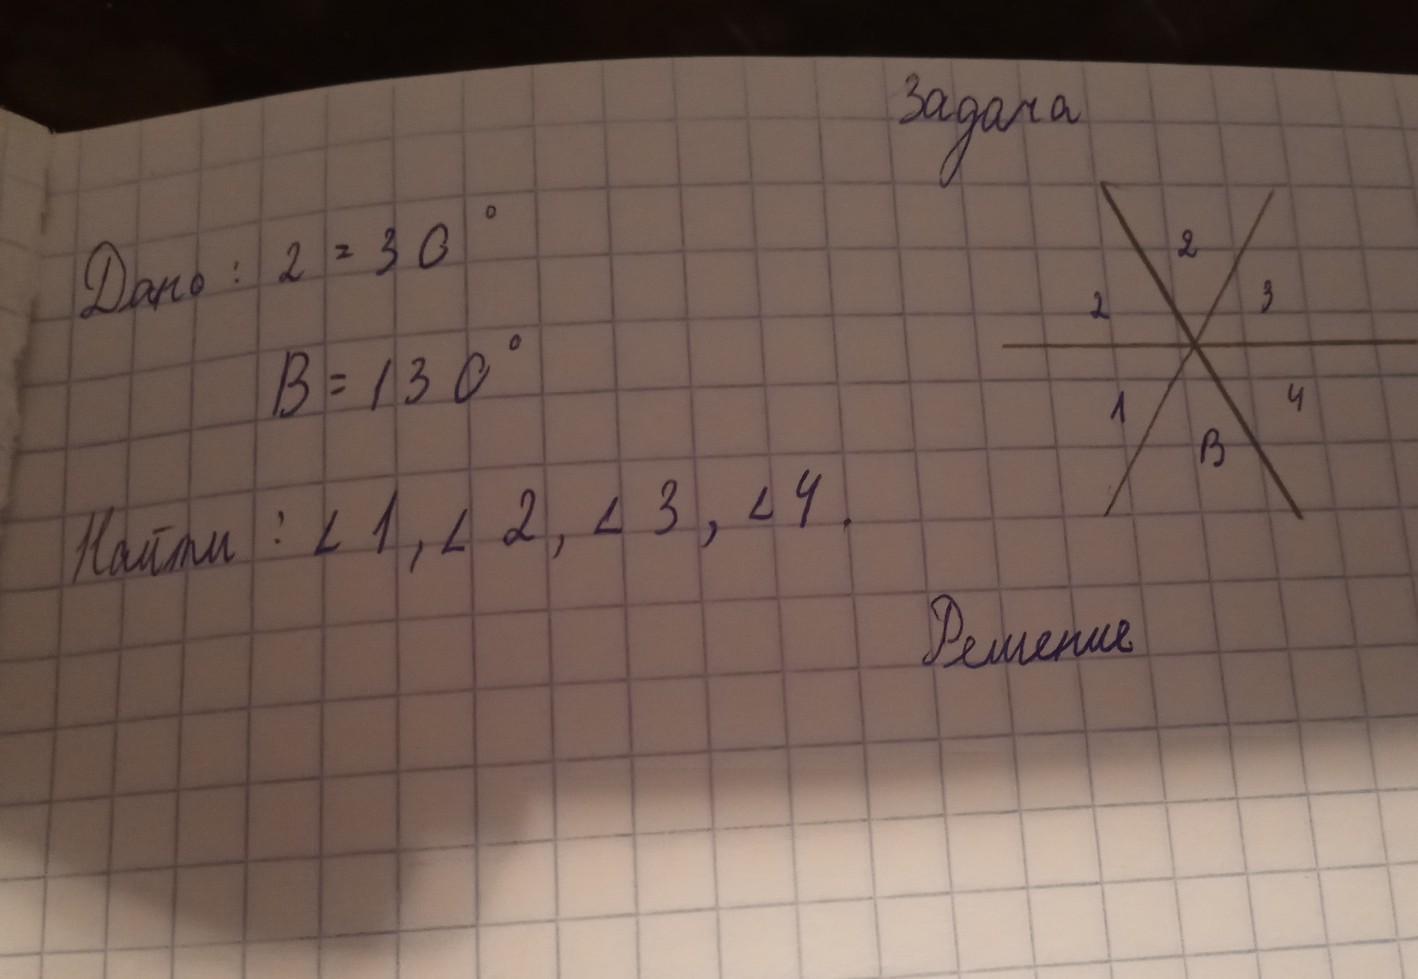 Задача
Дано: 2 = 30°
B = 130°
Найти: ∠1, ∠2, ∠3, ∠4.
2
2
3
1
B
4
Решение